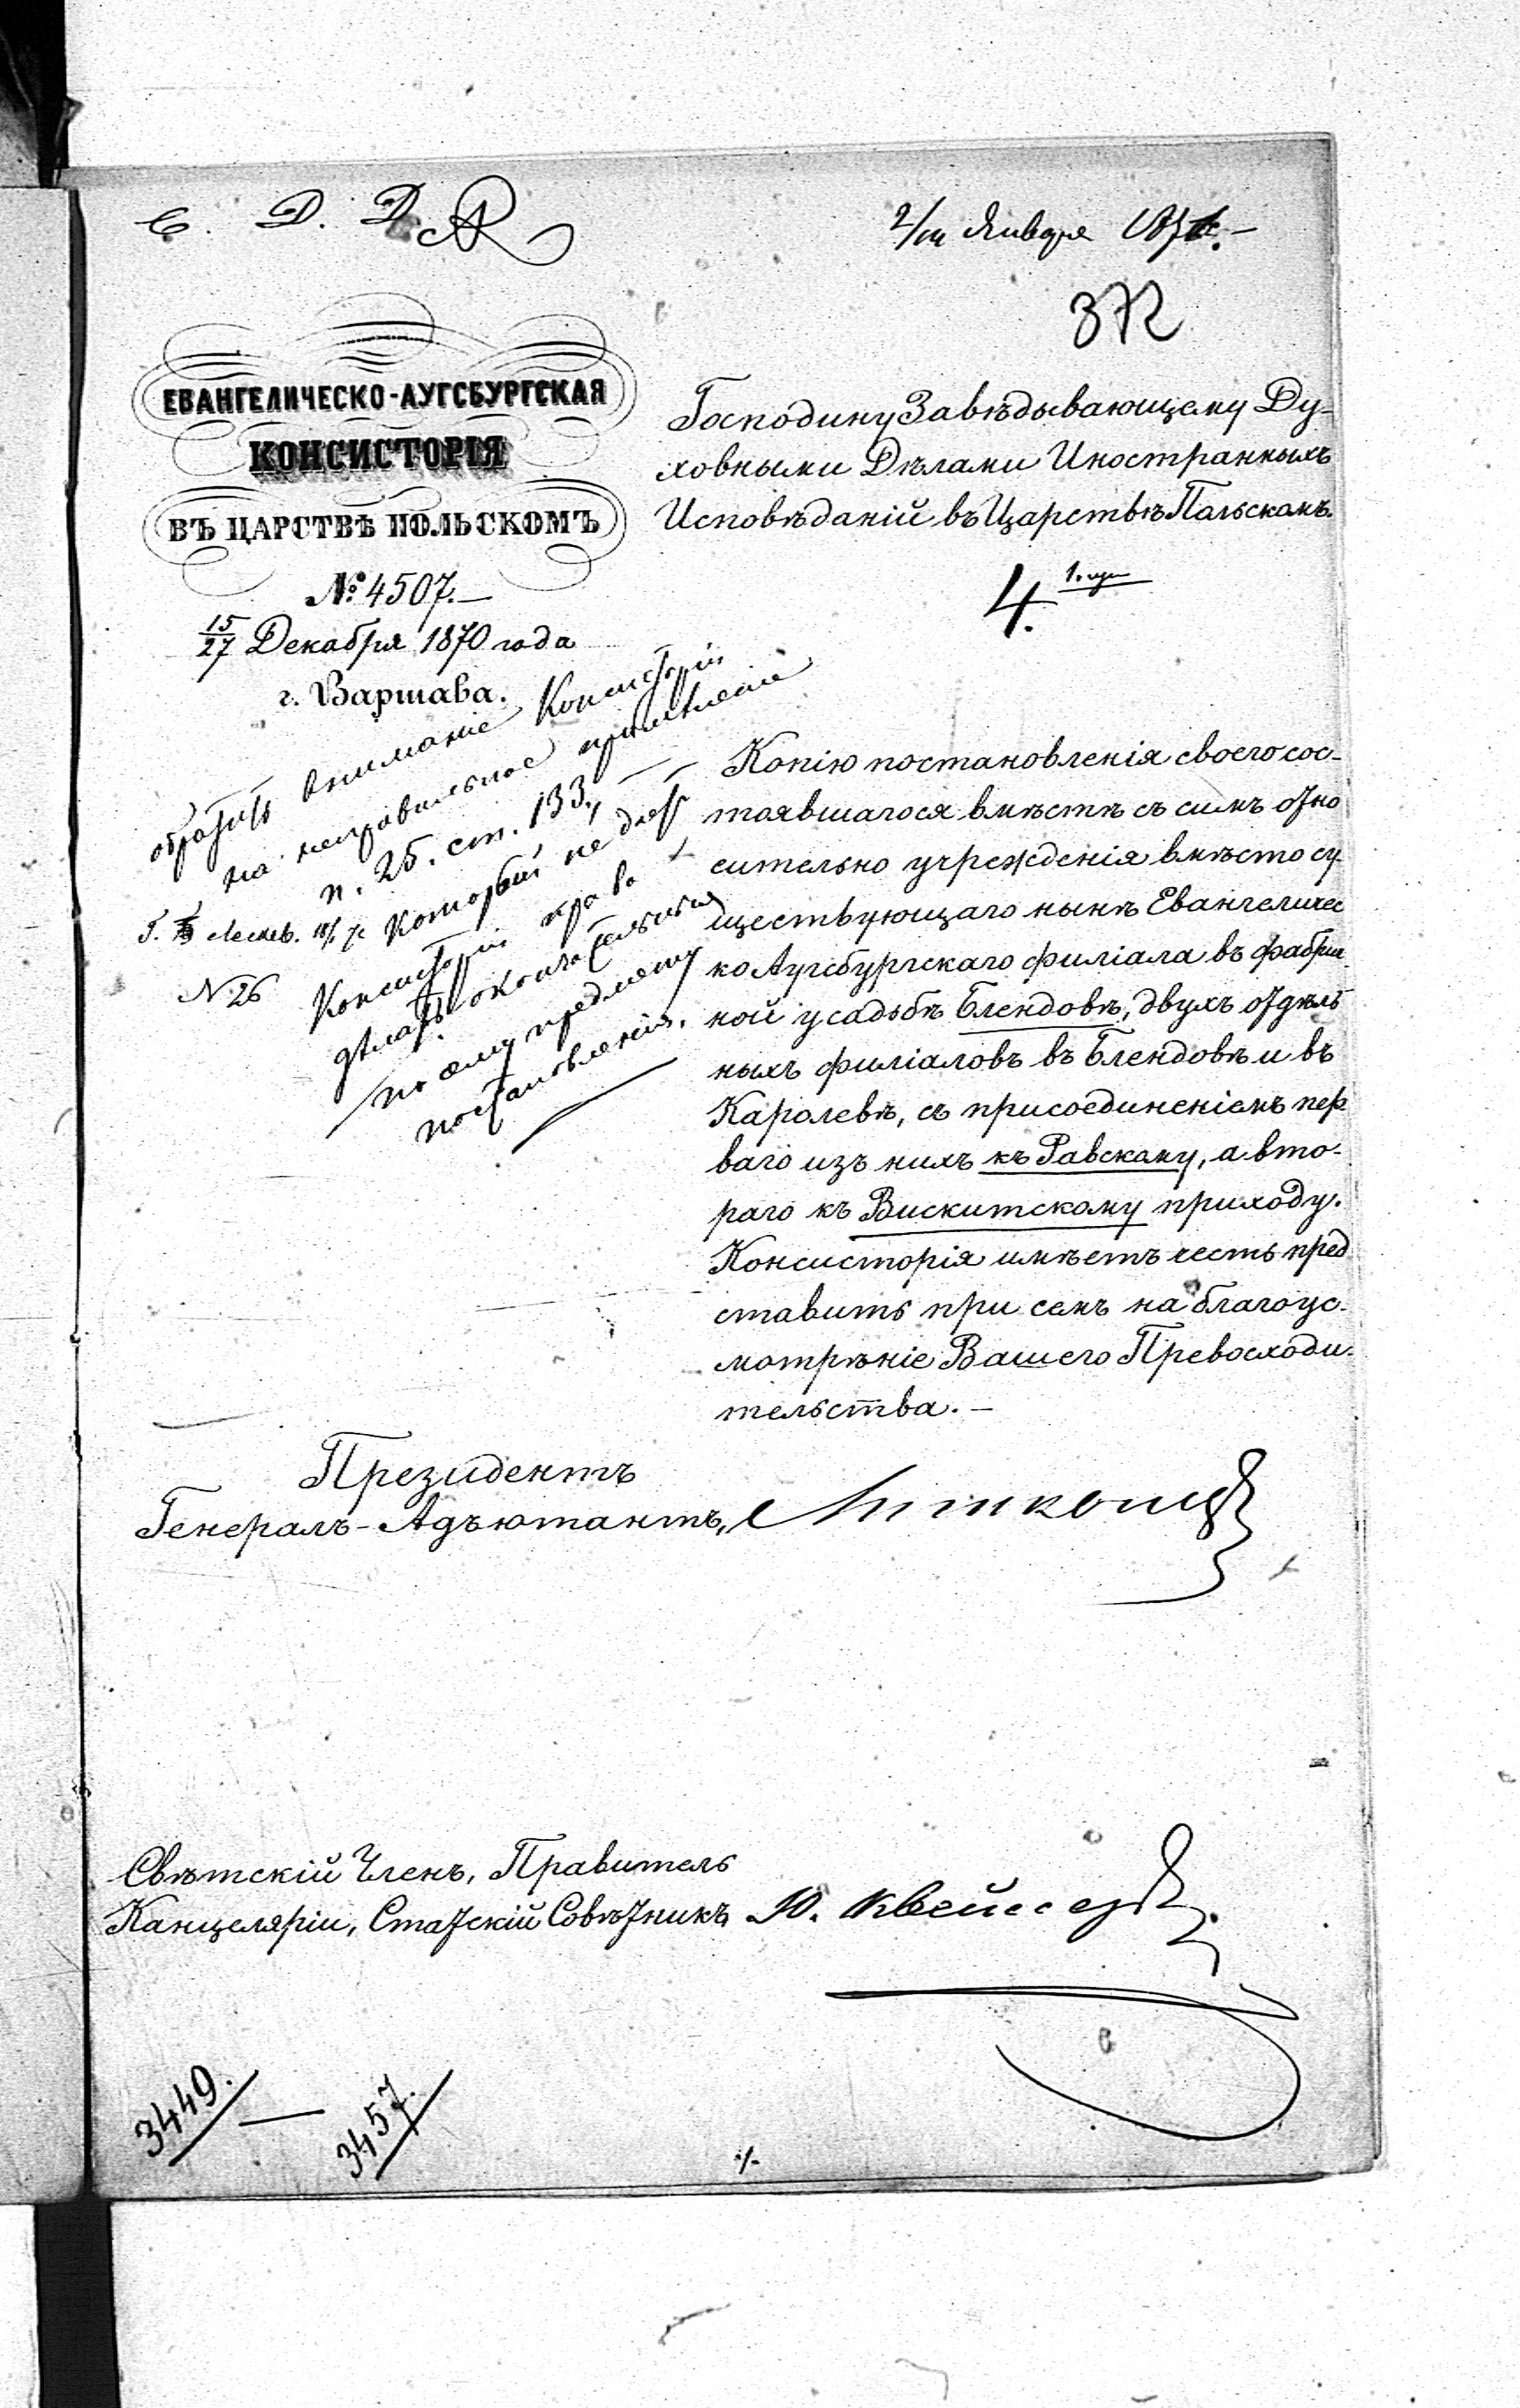 С. Д. Д.
2/14 Января 1871.
372
ЕВАНГЕЛИЧЕСКО-АУГСБУРГСКАЯ
КОНСИСТОРІЯ
ВЪ ЦАРСТВѢ ПОЛЬСКОМЪ
№ 4507.
15/27 Декабря 1870 года
г. Варшава.
Господину Завѣдывающему Ду-
ховными Дѣлами Иностранныхъ
Исповѣданій въ Царствѣ Польскомъ.
4.
обратить вниманіе Консисторіи
на неправильное примѣненіе
п. 25. ст. 133,
который не даетъ
Консисторіи права
дѣлать окончательныя
по сему предмету
постановленія.
№ 26
Копію постановленія своего сос-
тоявшагося вмѣстѣ съ симъ отно
сительно учрежденія вмѣсто су
ществующаго нынѣ Евангеличес
ко Аугсбургскаго филіала въ фабрич
ной усадьбѣ Блендовѣ, двухъ отдѣль
ныхъ филіаловъ въ Блендовѣ и въ
Каролевѣ, съ присоединеніемъ пер
ваго изъ нихъ къ Равскому, а вто-
раго къ Вискитскому приходу.
Консисторія имѣетъ честь пред
ставить при семъ на благоус-
мотрѣніе Вашего Превосходи-
тельства.
Президентъ
Генералъ-Адъютантъ,
Свѣтскій Членъ, Правитель
Канцеляріи, Статскій Совѣтникъ Ю.
3449. — 3457.